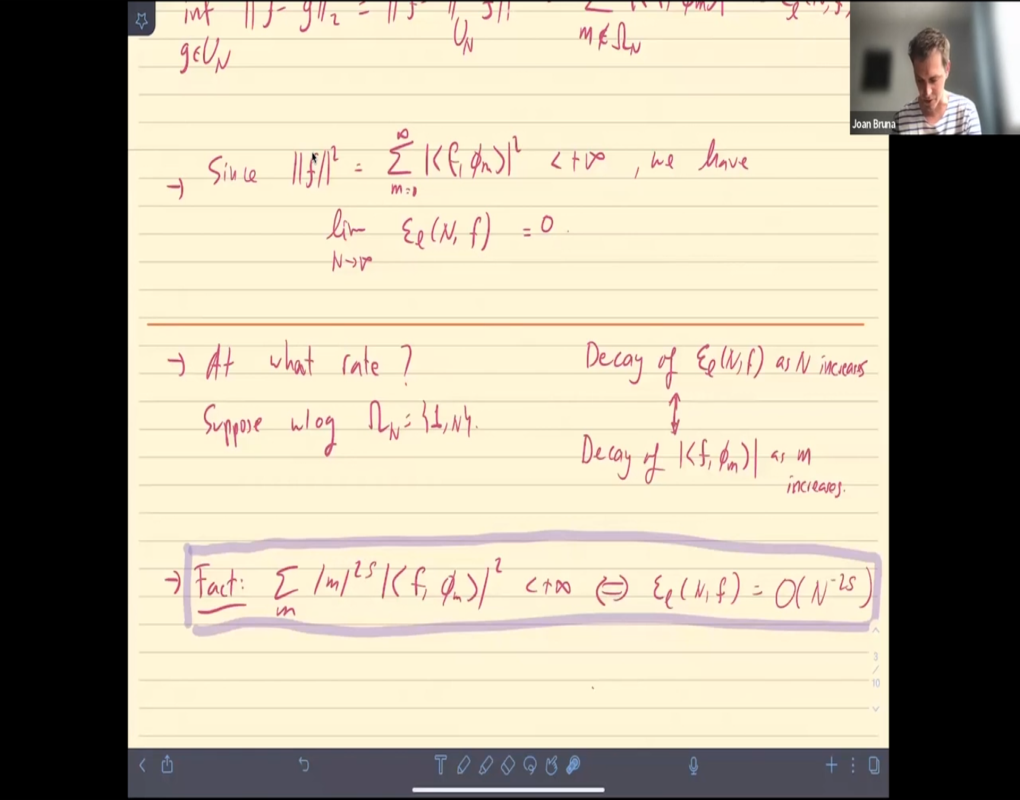 inf ||f - g||₂ = ||f - ||
g∈U_N U_N m∉Ω_N
Joan Bruna
→ Since ||f||² = Σ_{m=1}^∞ |<f, φ_m>|² < +∞, we have
lim_{N→∞} ε_ℓ(N, f) = 0.
→ At what rate?
Suppose wlog Ω_N = {1, N}.
Decay of ε_ℓ(N, f) as N increases
↕
Decay of |<f, φ_m>| as m
increases.
→ Fact: Σ_m |m|^{2s} |<f, φ_m>|² < +∞ ⇔ ε_ℓ(N, f) = O(N^{-2s})
3
/
10